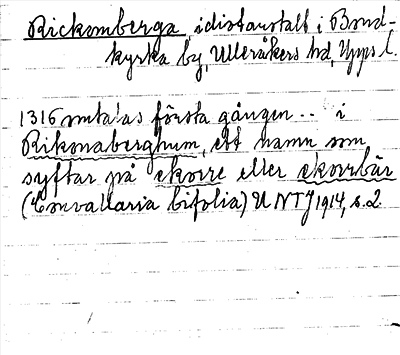 Rickomberga, idiotanstalt i Bond-
kyrka by, Ulleråkers hd, Upps l.
1316 omtalas första gången .. i
Rikonaberghum, ett namn som
syftar på ekorre eller ekorrbär
(Convallaria bifolia) UNT 1914, s. 2.